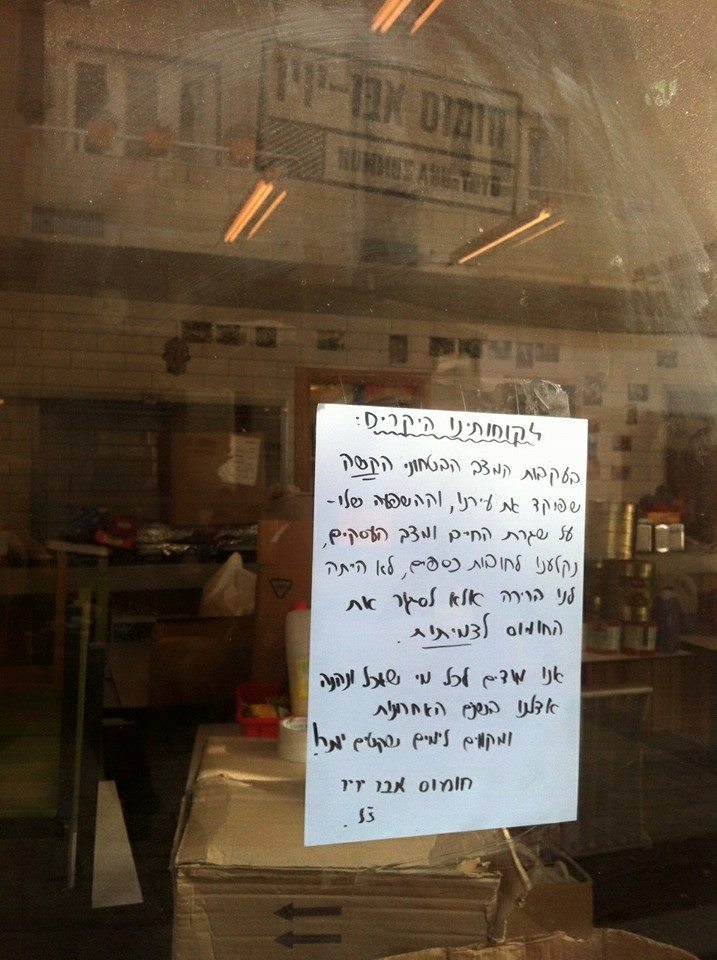 חומוס אבו-יויו
HUMMUS ABU YOYO
לקוחותינו היקרים:
בעקבות המצב הבטחוני הקשה
שפוקד את עירנו, וההשפעה שלו -
על שגרת החיים ומצב העסקים,
נקלענו לחובות כספים, לא היתה
לנו ברירה אלא לסגור את
החומוס לצמיתות.
אנו מודים לכל מי שאכל ונהנה
אצלנו בשנים האחרונות
ומקווים לימים שקטים יותר!
חומוס אבו יויו
ז"ל.